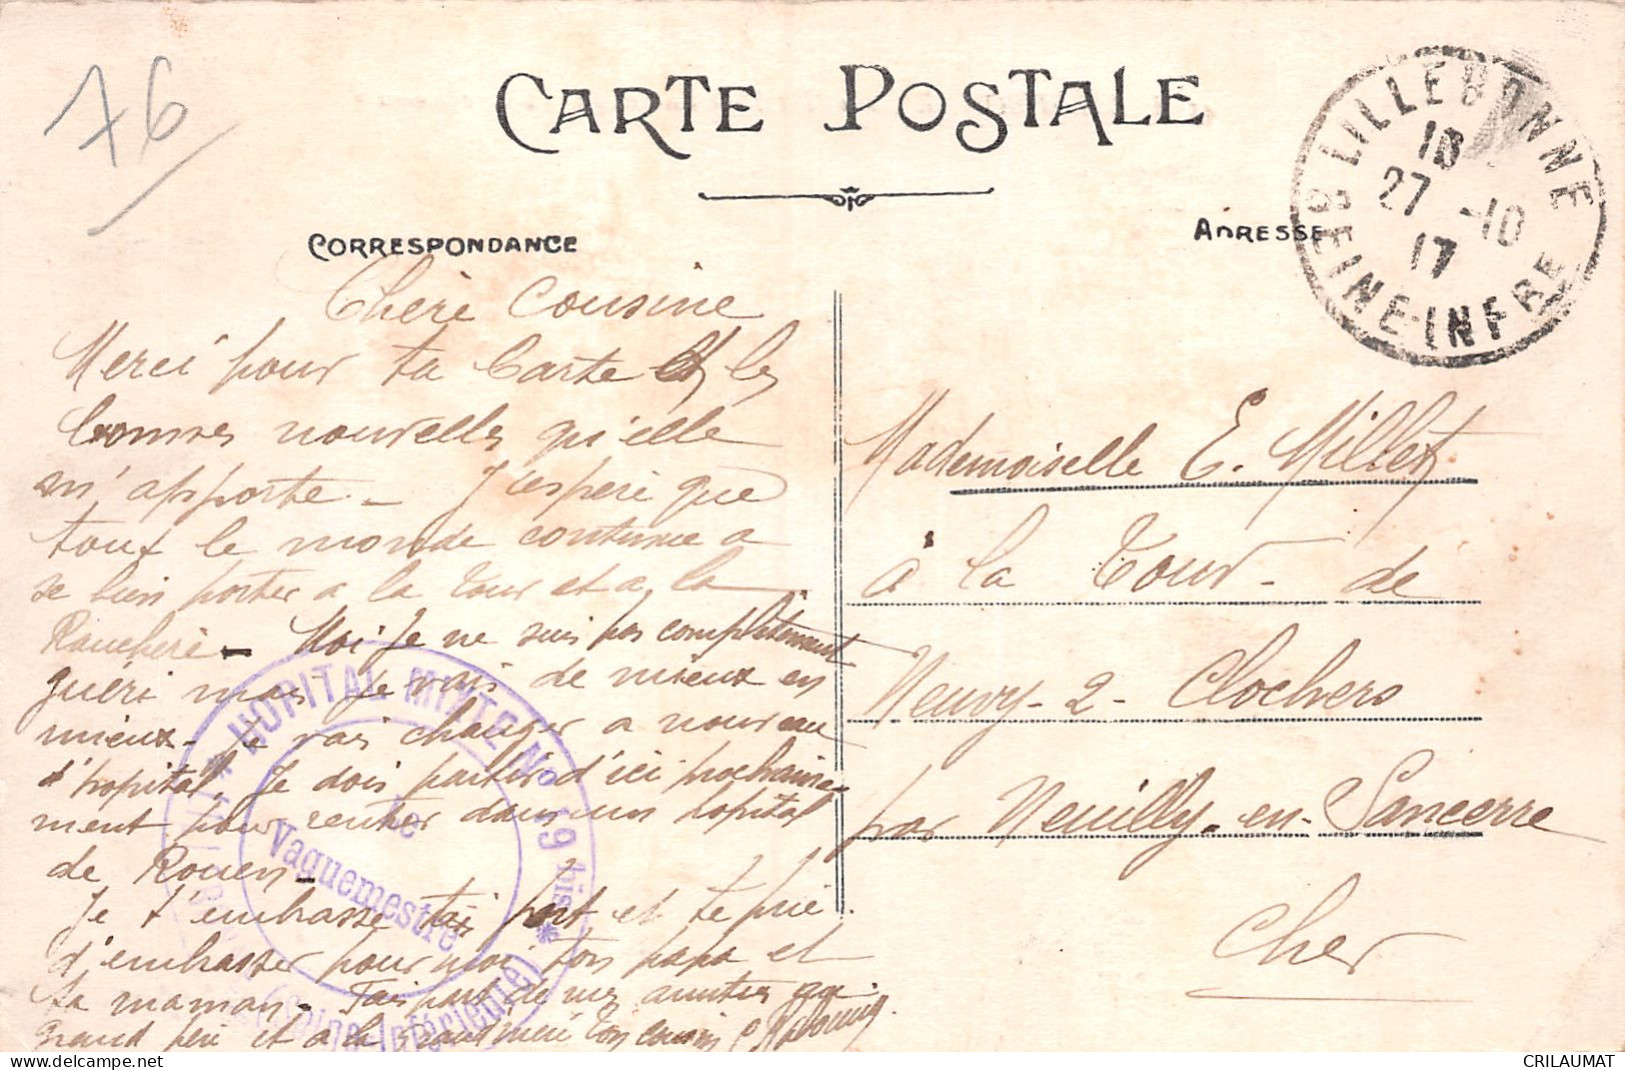 76
CARTE POSTALE
CORRESPONDANCE
ADRESSE
LILLEBONNE
18
27 -10
17
SEINE-INFRE
Chère Cousine
Merci pour ta Carte et les
bonnes nouvelles qu'elle
m'apporte - J'espère que
tout le monde continue a
se bien porter a la Tour et a la
Rauchère - Moi Je ne suis pas complètement
guéri mais Je vais de mieux en
mieux - Je vais changer a nouveau
d'hopital. Je dois partir d'ici prochaine-
ment pour rentrer dans un hopital
de Rouen -
Je t'embrasse très fort et te prie
d'embrasser pour moi ton papa et
ta maman - Fais part de mes amitiés au
grand père et a la grand mère Ton cousin
HOPITAL MIXTE No 19 bis
Le
Vaguemestre
(Seine-Inférieure)
Mademoiselle E. Millet
à la Tour - de
Neuvy - 2 - Clochers
par Neuilly - en - Sancerre
Cher
CRILAUMAT